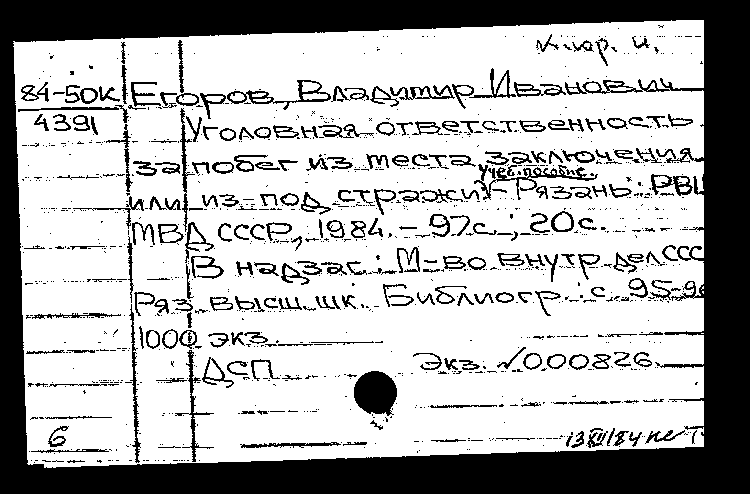 К.юр. н.
84-50К Егоров, Владимир Иванович
4391 Уголовная ответственность
за побег из места заключения
Учеб. пособие.
или из-под стражи. - Рязань: РВШ
МВД СССР, 1984. - 97с.; 20с.
В надзаг.: М-во внутр дел ССС
Ряз. высш. шк. Библиогр.: с. 95-96
1000 экз.
ДСП Экз. №000826.
6
13 XII/84